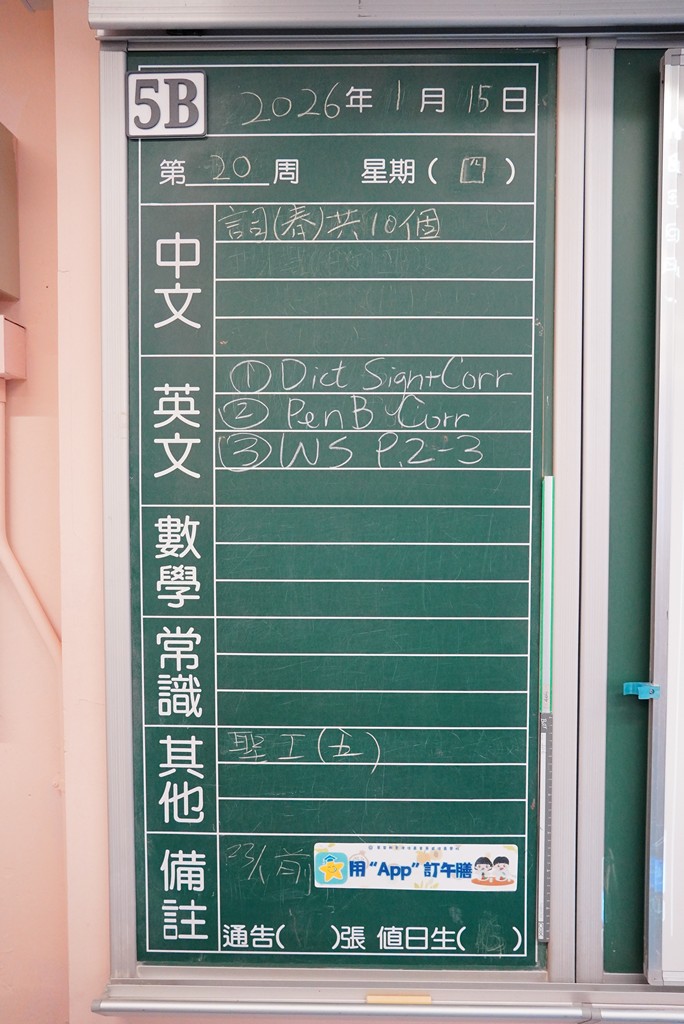 5B 2026年1月15日
第20周 星期(四)
中文
詞(春)共10個
英文
① Dict Sign+Corr
② Pen B Corr
③ WS P.2-3
數學
常識
其他
聖工(五)
備註
前
用“App”訂午膳
通告( )張 值日生( )